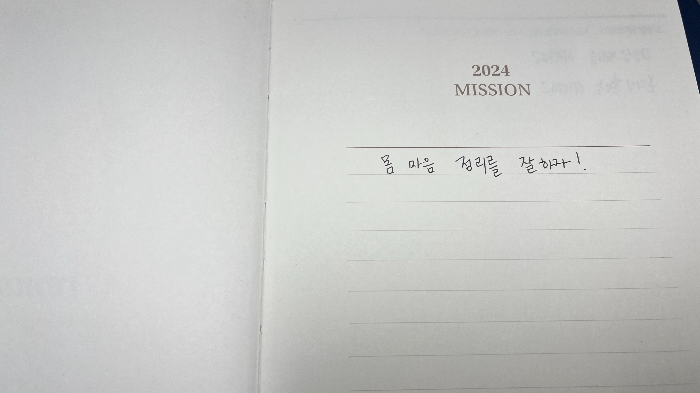 2024
MISSION
몸 마음 정리를 잘하자!